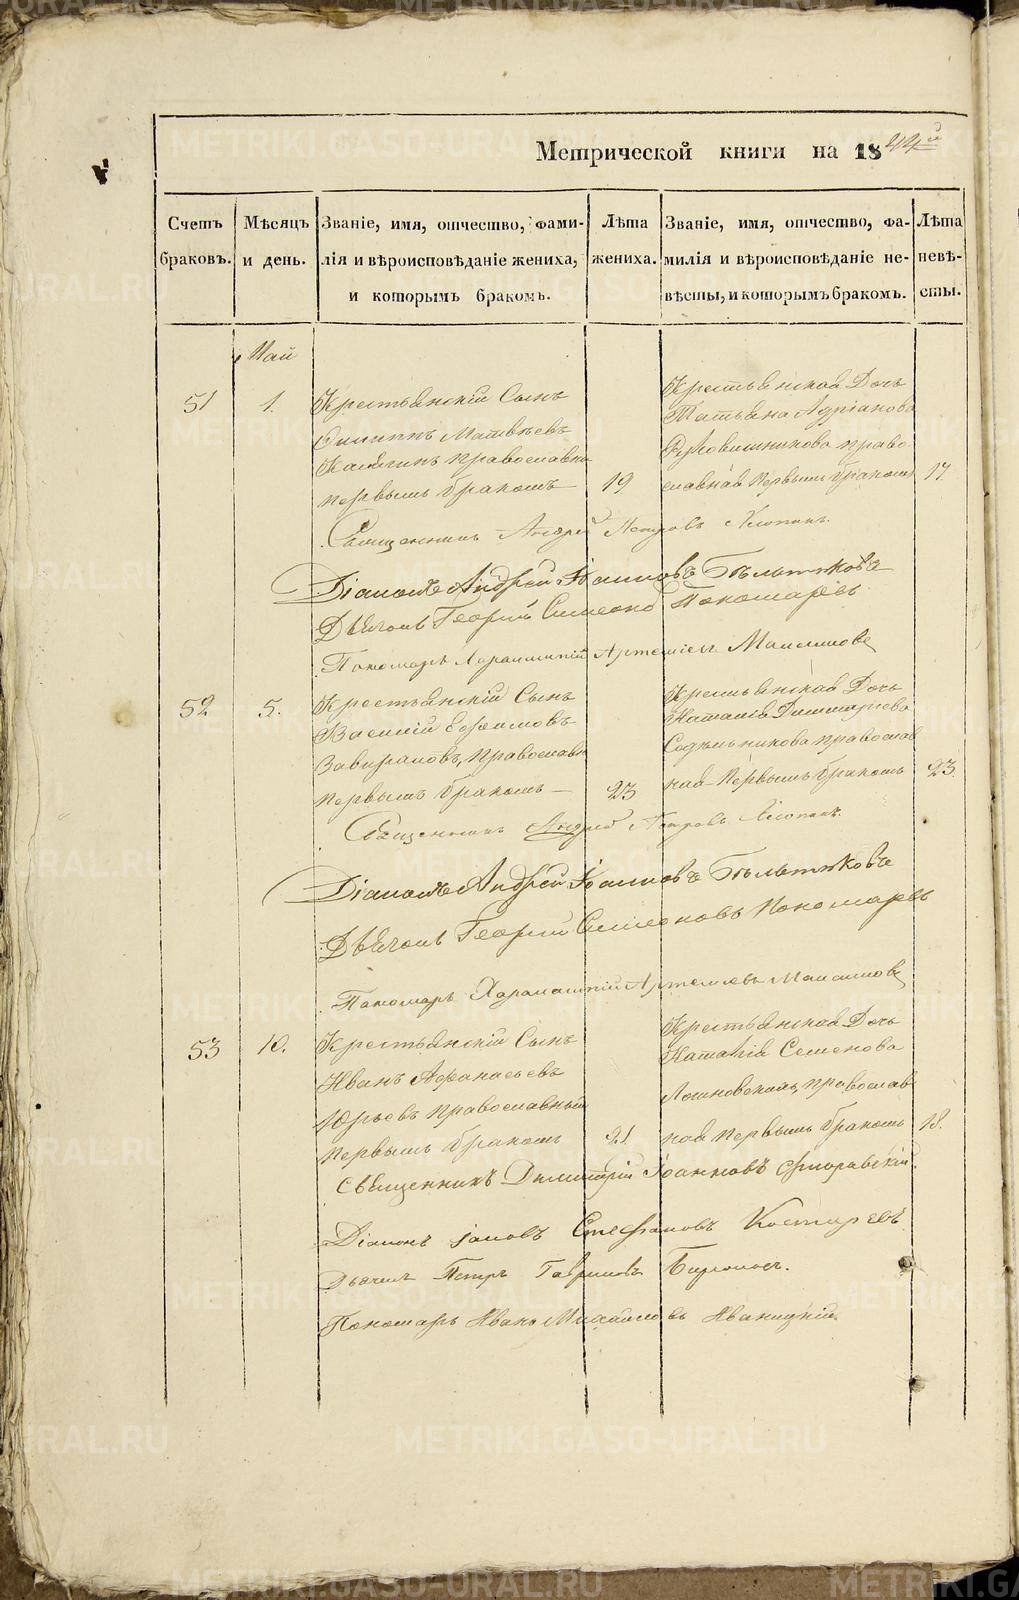 Метрической книги на 1844й
Счетъ браковъ.
Мѣсяцъ и день.
Званіе, имя, отчество, фами-
лія и вѣроисповѣданіе жениха,
и которымъ бракомъ.
Лѣта жениха.
Званіе, имя, отчество, фа-
милія и вѣроисповѣданіе не-
вѣсты, и которымъ бракомъ.
Лѣта невѣ-
сты.
Май
51
1.
Крестьянскій Сынъ
Филиппъ Матвѣевъ
православны
первымъ бракомъ
19
Крестьянская Дочь
Татьяна Адріанова
Рукавишникова право
славная Первымъ бракомъ
17.
Священникъ Андрей Петровъ
Діаконъ Андрей Іоанновъ
Дьячокъ Георгій Симеонов Пономаревъ
Пономарь Харалампій Артемьевъ Максимовъ
52
5.
Крестьянскій Сынъ
Василій Ефимовъ
Православн
первымъ бракомъ —
23
Крестьянская Дочь
Наталія Димитріева
Содѣльникова православ
ная Первымъ бракомъ
23.
Священникъ Андрей Петровъ
Діаконъ Андрей Іоанновъ
Дьячокъ Георгій Симеоновъ Пономаревъ
Пономарь Харалампій Артемьевъ Максимовъ
53
10.
Крестьянскій Сынъ
Иванъ Афанасьевъ
Юрьевъ православный
первымъ бракомъ
21.
Крестьянская Дочь
Наталія Семенова
православ
ная первымъ бракомъ
18.
Священникъ Димитрій Іоанновъ Флоравскій.
Діаконъ Іаковъ Стефановъ Костаревъ
Дьячекъ Петръ Гавриловъ
Пономарь Иванъ Михайловъ Иваницкій
METRIKI.GASO-URAL.RU